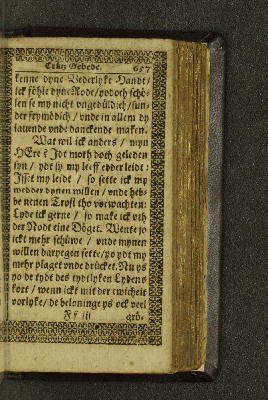 Crütz Gebede. 657
kenne dyne Vederlyke Handt/
ick föhle dyne Rode/ ydoch schö-
len se my nicht vngedüldich/ sun-
der frymödich/ vnde in allem dy
lauende vnde danckende maken.
Wat wil ick anders/ myn
HEre? Idt moth doch geleden
syn/ ydt sy my leeff edder leidt:
Isset my leidt/ so sette ick my
wedder dynen willen/ vnde heb-
be nenen Trost tho vorwachten:
Lyde ick gerne/ so make ick vth
der Nodt eine Döget. Wente so
ickt mehr schüwe/ vnde mynen
willen darwegen sette/ yo ydt my
mehr plaget vnde drücket. Nu ys
yo de tydt des tydtlyken Lydens
kort/ wenn ickt mit der ewicheit
vorlyke/ de beloninge ys ock veel
Ff iij grö-